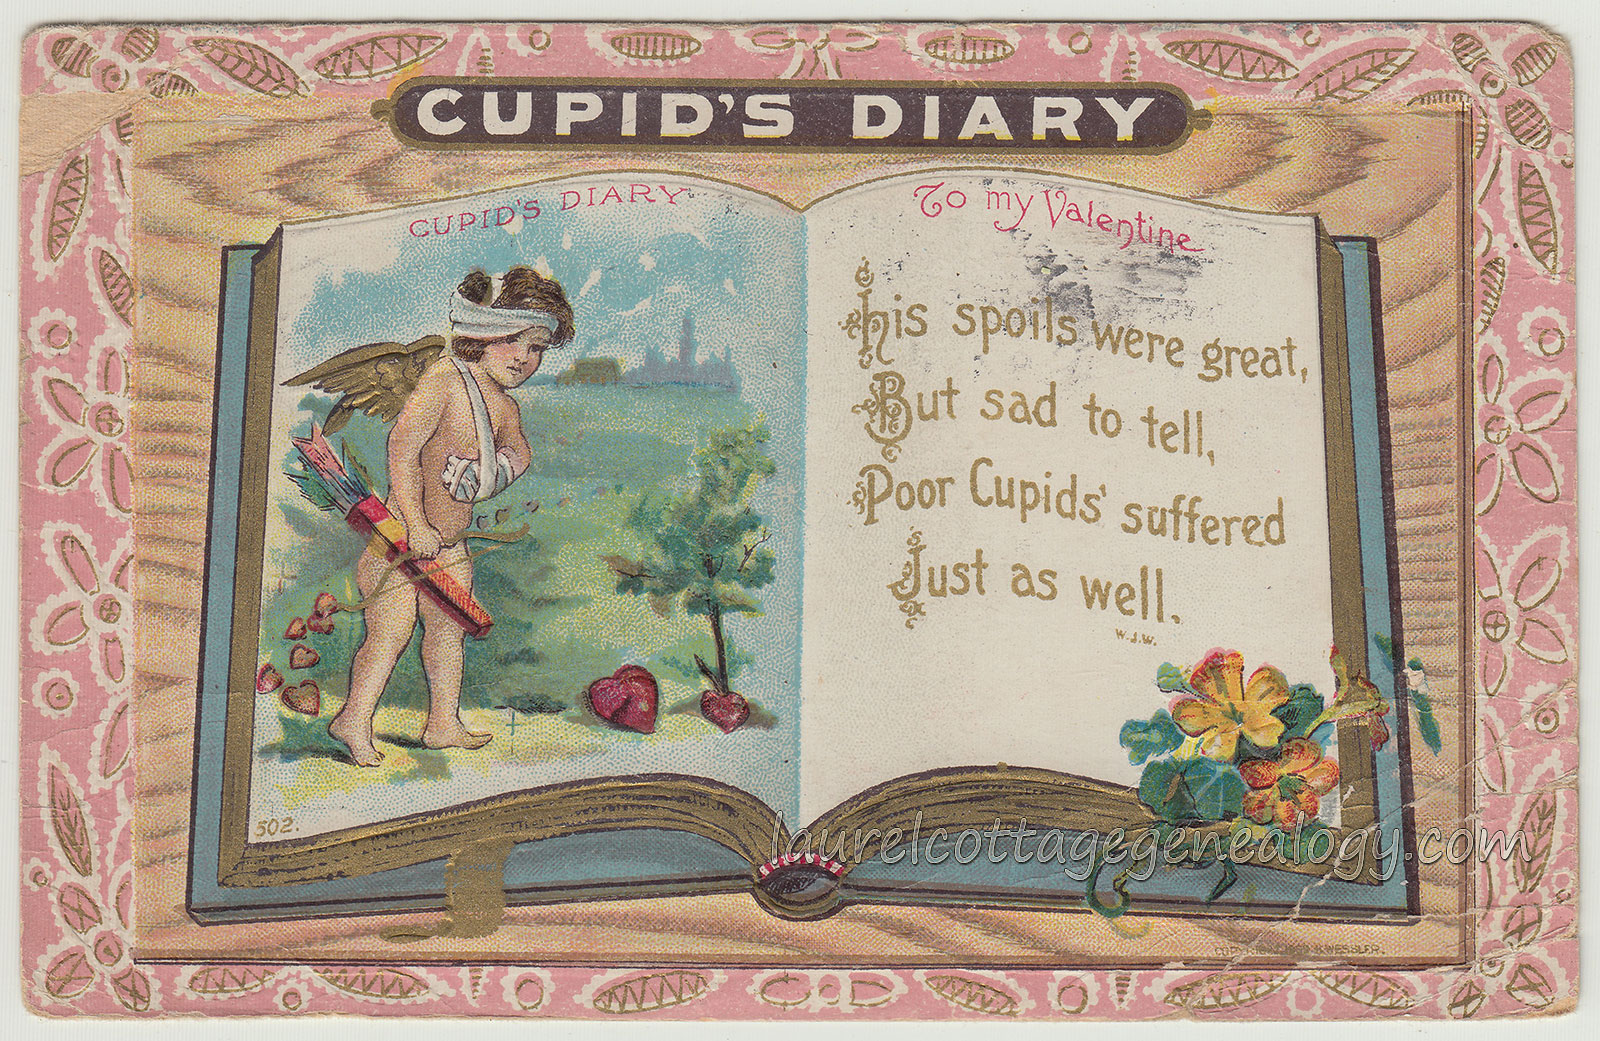 CUPID'S DIARY
CUPID'S DIARY
To my Valentine
His spoils were great,
But sad to tell,
Poor Cupids' suffered
Just as well.
W.J.W.
502.
laurelcottagegenealogy.com
WESSLER.